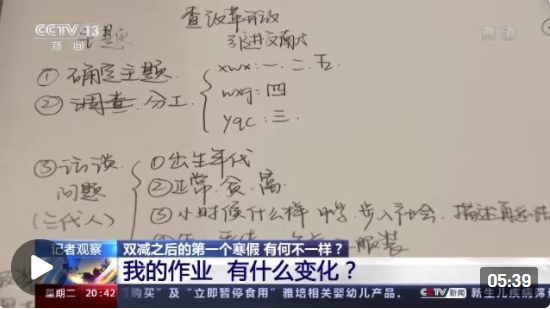 CCTV 13
新闻
高清
查改革开放
主题
① 确定主题
② 调查 分工
xwx:一.二.五
wxg:四
yqc:三.
③ 访谈
问题
(三代人)
① 出生年代
② 正常.贫.富
③ 小时候什么样 中学.步入社会.描述
服装
记者观察
双减之后的第一个寒假 有何不一样?
我的作业 有什么变化?
05:39
星期二 20:42
购买”及“立即暂停食用”雅培相关婴幼儿产品。
CCTV 新闻
新生儿疾病筛